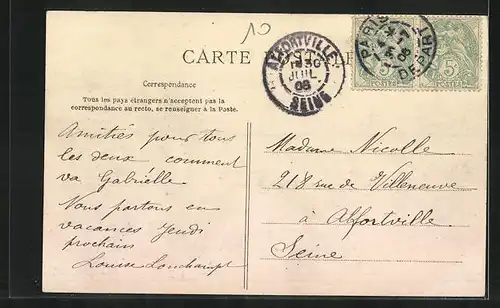 10
CARTE POSTALE
ALFORTVILLE
JUIL
08
SEINE
PARIS
DEPART
5c 5c
POSTES
Correspondance
Tous les pays étrangers n'acceptent pas la
correspondance au recto, se renseigner à la Poste.
Amitiés pour tous
les deux comment
va Gabrielle
Nous partons en
vacances Jeudi
prochain
Louise Lonchampt
Madame Nicolle
218 rue de Villeneuve
à Alfortville
Seine